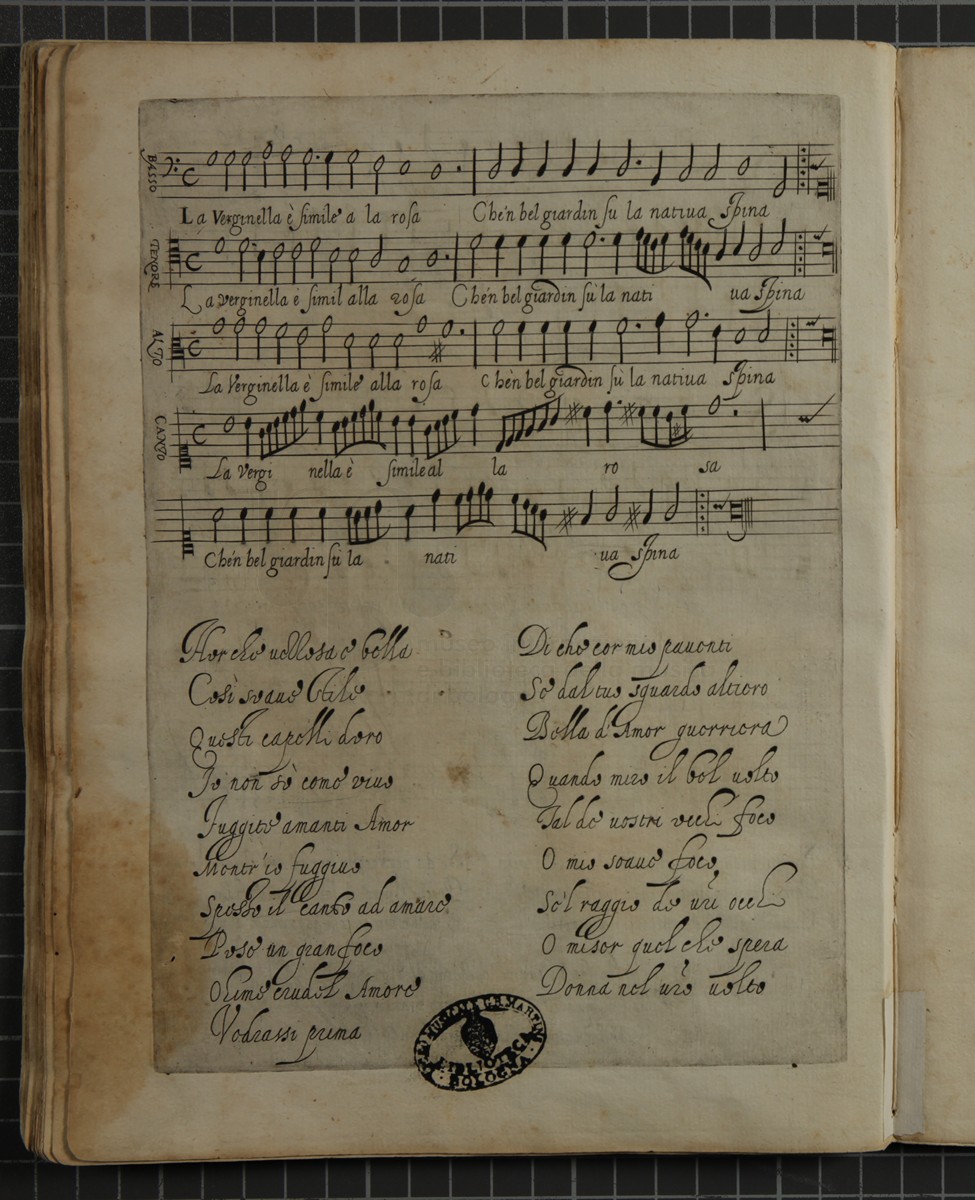 BASSO
La Verginella è simile a la rosa Che'n bel giardin su la natiua Spina
TENORE
La verginella è simil alla rosa Che'n bel giardin sù la nati ua Spina
ALTO
La Verginella è simile alla rosa Chè'n bel giardin sù la natiua Spina
CANTO
La Vergi nella è simile al la ro sa
Che'n bel giardin sù la nati ua Spina
Hor che uezzosa e bella
Così soaue stile
Questi capelli d'oro
Io non sò come viuo
Fuggite amanti Amor
Mentr'io fuggiuo
Spesso il canto ad amare
Pose un gran foco
Ohime crudel Amore
Vedrassi prima
Di che cor mio pauenti
Se dal tuo sguardo altiero
Bella d'Amor guerriera
Quando miro il bel uolto
Tal de uostri occhi foco
O mio soaue foco
Se'l raggio de uri occhi
O miser quel che spera
Donna nel uro uolto
LICEO MUSICALE G.B. MARTINI
BIBLIOTECA
BOLOGNA